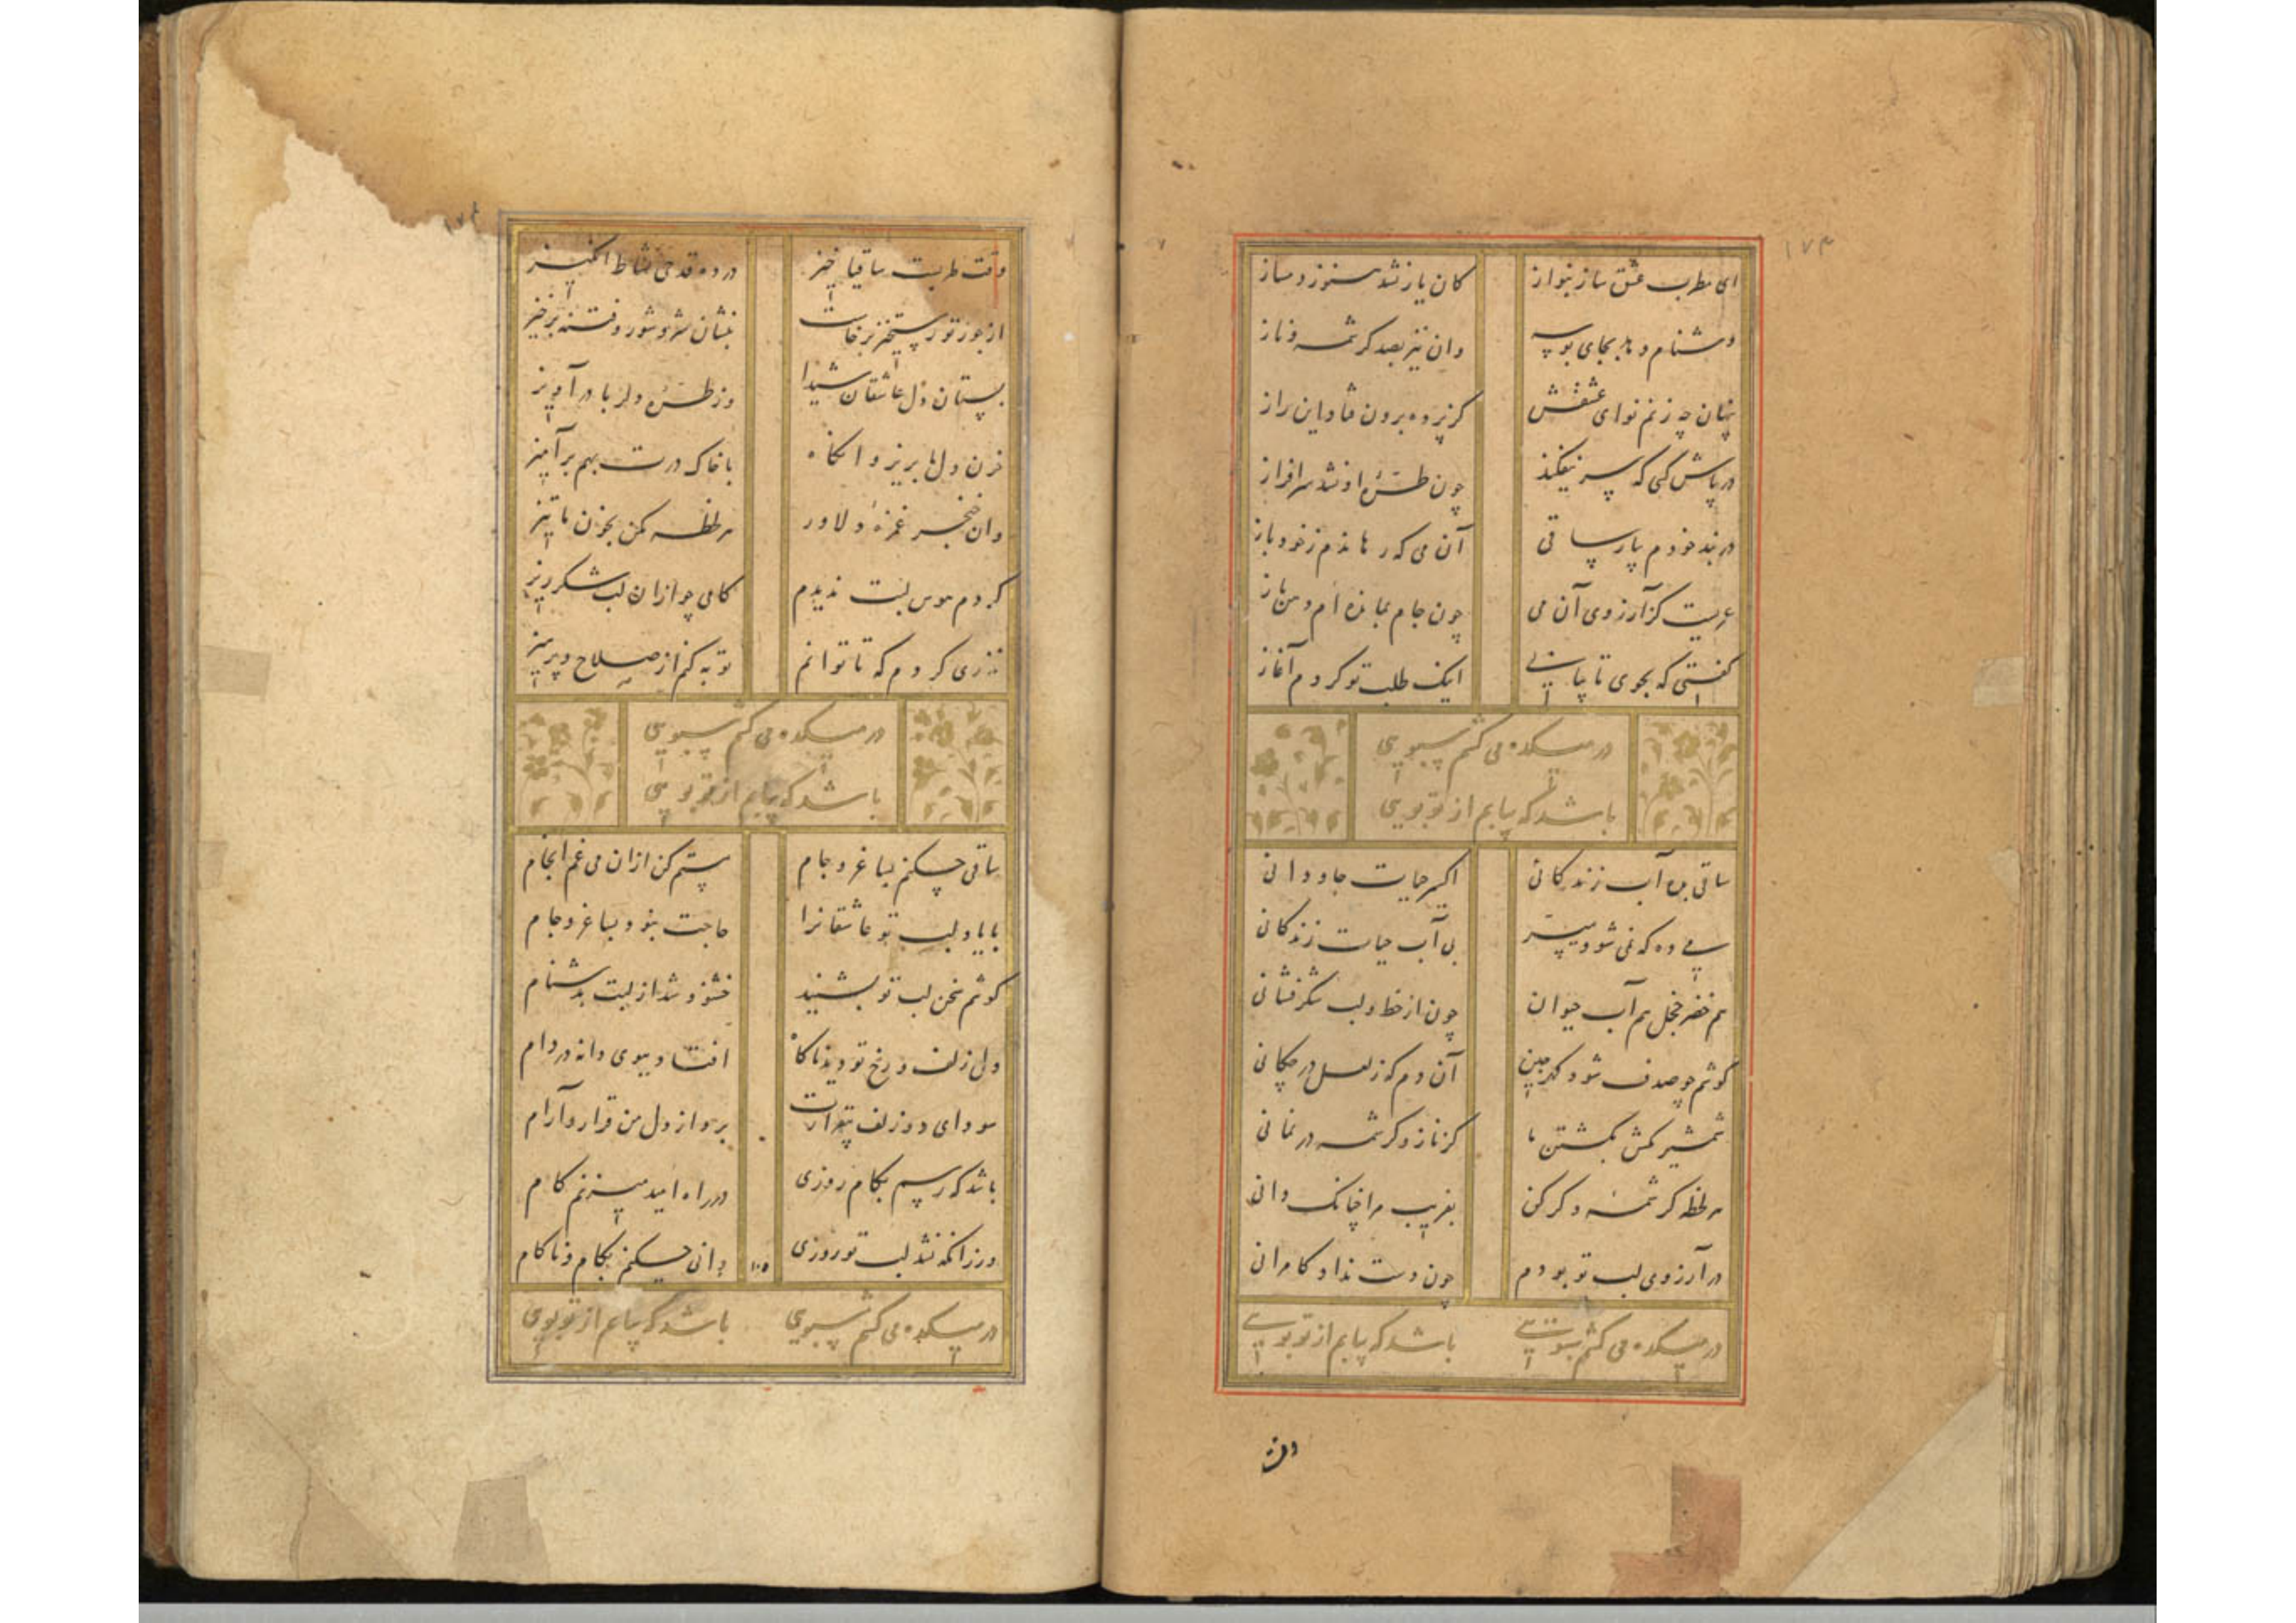 ۱۷۴
ای مطرب عشق ساز بنواز کان یار نشد هنوز دمساز
دشنام دهد بجای بوسه وان نیز بصد کرشمه و ناز
پنهان چه زنم نوای عشقش کز پرده برون فتاد این راز
در پاش کسی که سر نیفکند چون طرّهٔ او نشد سرافراز
در بند خودم بیار ساقی آن می که رهاندم ز خود باز
عمریست کز آرزوی آن می چون جام بمانده‌ام دهن باز
گفتی که بجوی تا بیابی اینک طلب تو کردم آغاز
در میکده می کشم سبویی
باشد که بیابم از تو بویی
ساقی بده آب زندگانی اکسیر حیات جاودانی
می ده که نمی شود میسّر بی آب حیات زندگانی
هم خضر خجل هم آب حیوان چون از خط و لب شکرفشانی
گوشم چو صدف شود گهرچین آن دم که ز لعل در چکانی
شمشیر مکش بکشتن ما کز ناز و کرشمه در نمانی
هر لحظه کرشمهٔ دگر کن بفریب مرا چنانک دانی
در آرزوی لب تو بودم چون دست نداد کامرانی
در میکده می کشم سبویی باشد که بیابم از تو بویی
وقت طربست ساقیا خیز در ده قدحی نشاط انگیز
از جور تو رستخیز برخاست بنشان شر و شور و فتنه برخیز
بستان دل عاشقان شیدا وز طرّهٔ دلربا درآویز
خون دل ما بریز و آنگاه با خاک درت بهم برآمیز
وان خنجر غمزهٔ دلاور هر لحظه مکن بخون ما تیز
کردم هوس لبت ندیدم کامی چو ازان لب شکرریز
نذری کردم که تا توانم توبه کنم از صلاح و پرهیز
در میکده می کشم سبویی
باشد که بیابم از تو بویی
ساقی چکنم بساغر و جام مستم کن ازان می غم انجام
با یاد لب تو عاشقانرا حاجت نبود بساغر و جام
گوشم سخن لب تو بشنید خشنود شد از لبت بدشنام
دل زلف و رخ تو دید ناگاه افتاد ببوی دانه در دام
سودای دو زلف بیقرارت برد از دل من قرار و آرام
باشد که رسم بکام روزی در راه امید میزنم گام
ور زانکه نشد لب تو روزی دانی چکنم بکام و ناکام
در میکده می کشم سبویی باشد که بیابم از تو بویی